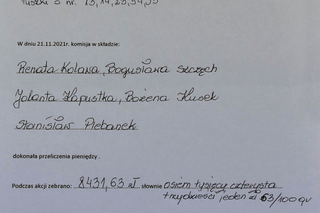 puszki o nr. 13,14,23,34,35
W dniu 21.11.2021r. komisja w składzie:
Renata Kolana, Bogusława Szczęch
Jolanta Kapustka, Bożena Kusek
Stanisław Plebanek
dokonała przeliczenia pieniędzy .
Podczas akcji zebrano: 8431,63 zł słownie osiem tysięcy czterysta
trzydzieści jeden zł 63/100 gr